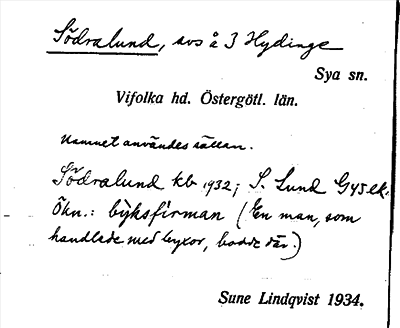 Södralund, avs å 3 Hydinge
Sya sn.
Vifolka hd. Östergötl. län.
Namnet användes sällan.
Södralund kb 1932; S. Lund G45 ek.
Ökn.: býksfirman (En man, som
handlade med byxor, bodde där.)
Sune Lindqvist 1934.